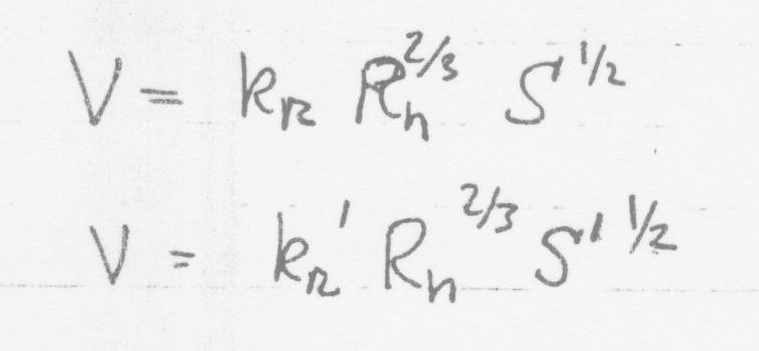 V = k_R R_h^{2/3} S^{1/2}
V = k_R' R_h^{2/3} S'^{1/2}